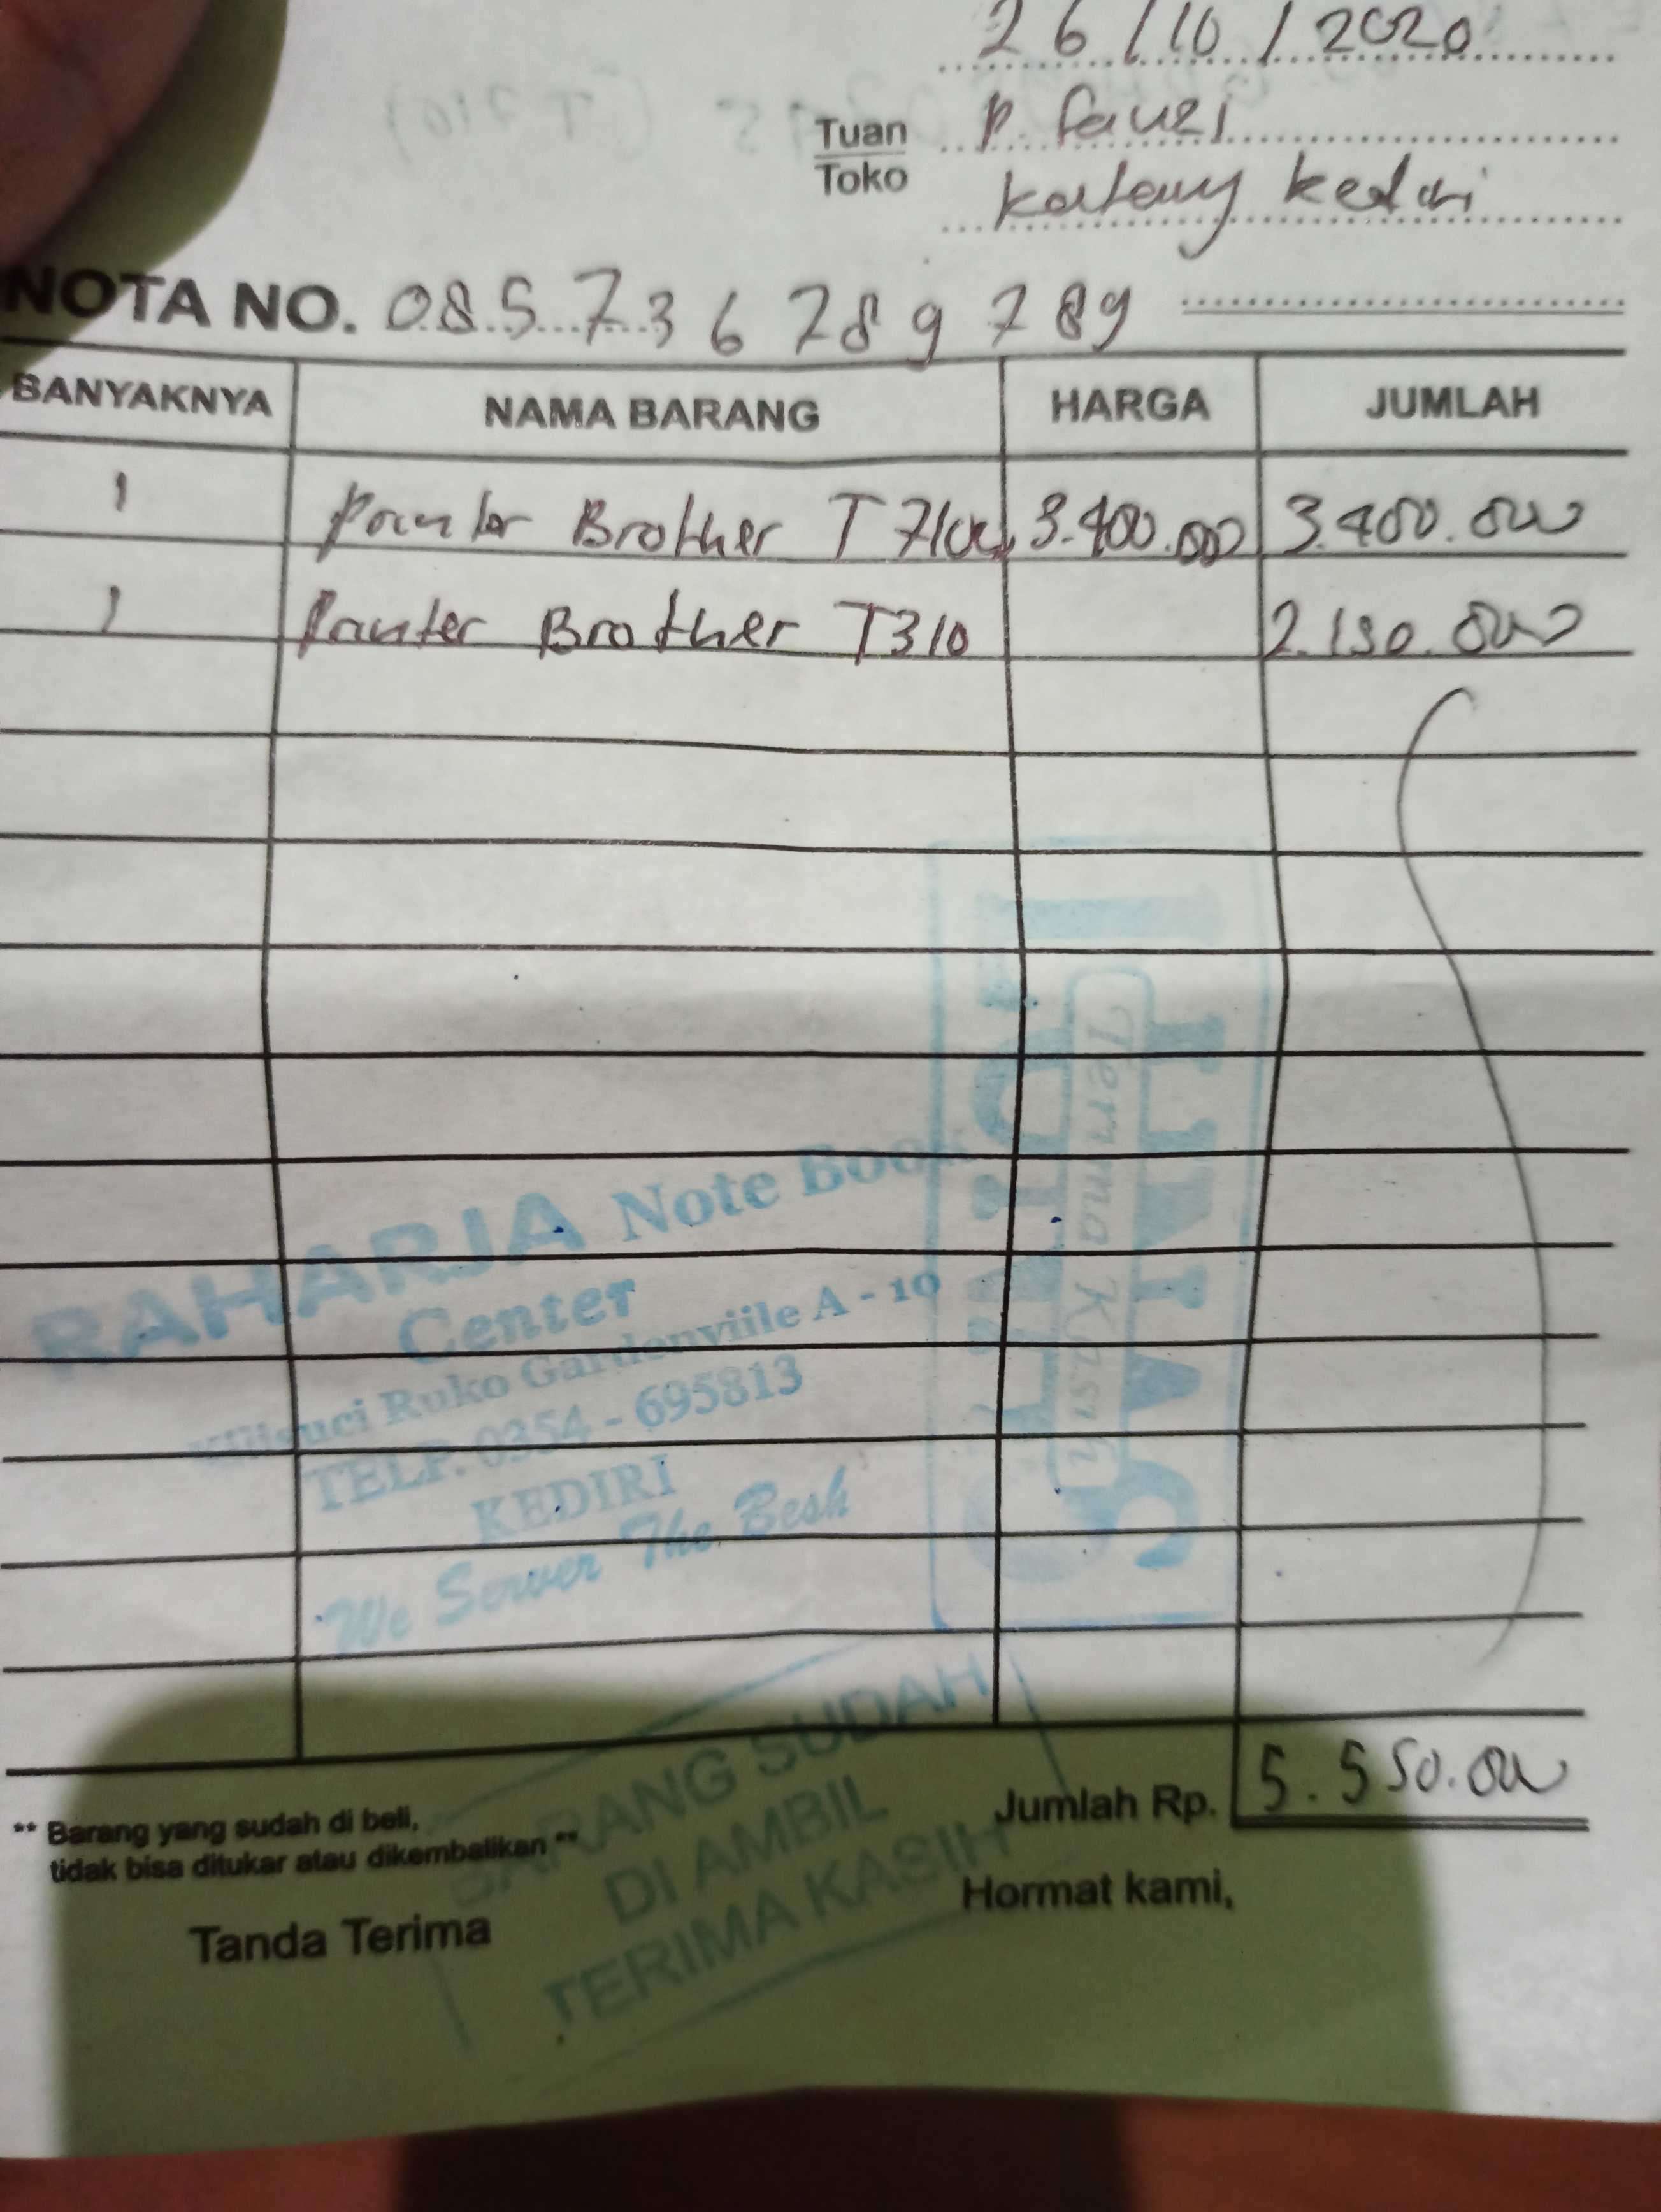 26/10/2020
Tuan P. Fauzi
Toko Kediri
NOTA NO. 085736789789
BANYAKNYA NAMA BARANG HARGA JUMLAH
1 Printer Brother T710W 3.400.000 3.400.000
1 Printer Brother T310 2.150.000
RAHARJA Note Book
Center
Kilisuci Ruko Gardenviile A - 10
TELP. 0354 - 695813
KEDIRI
We Server The Besh
CASH
Terima Kasih
BARANG SUDAH
DI AMBIL
TERIMA KASIH
Jumlah Rp. 5.550.000
** Barang yang sudah di beli,
tidak bisa ditukar atau dikembalikan **
Tanda Terima Hormat kami,